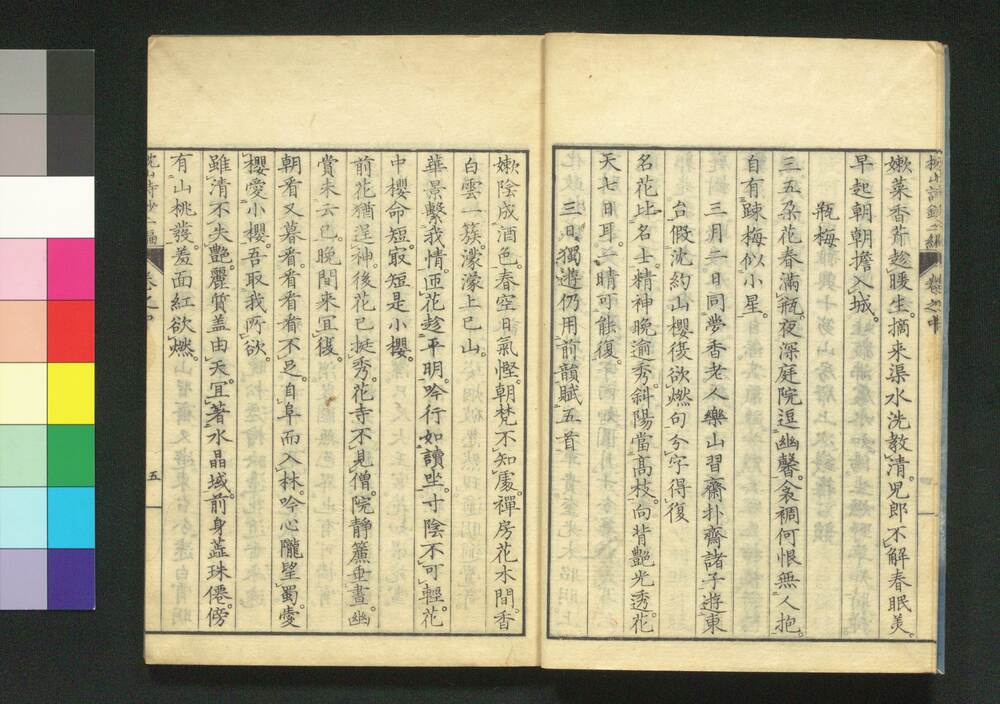 嫰菜香芹趁腰生。摘来渠水洗教清。児郎不解春眠美。
早起朝朝擔入城。
瓶梅
三五朶花春滿瓶。夜深庭院逗幽馨。衾裯何恨無人抱。
自有踈梅似小星。
三月二日同夢香老人樂山習齋扑齋諸子遊東
台假沈約山櫻後欲燃句分字得復
名花比名士精神晚逾秀。斜陽當髙枝。向背艷光透。花
天七日耳。一晴可能復。
三日獨遊仍用前韻賦五首
嫰陰成酒色。春空日氣慳。朝梵不知處。禪房花木間。香
白雲一簇。濛濛上巳山。
華景繫我情。匝花趁平明。吟行如讀坐。寸陰不可輕。花
中櫻命短。㝡短是小櫻。
前花猶逞神。後花已挺秀。花寺不見僧。院静簾垂晝。幽
賞未云已。晚間来冝復。
朝看又暮看。看看看不足。自阜而入林。吟心隴望蜀。愛
櫻愛小櫻。吾取我所欲。
雖清不失艷。麗質盖由天。冝著水晶域。前身蕋珠僊。傍
有山桃發。羞面紅欲燃。
五